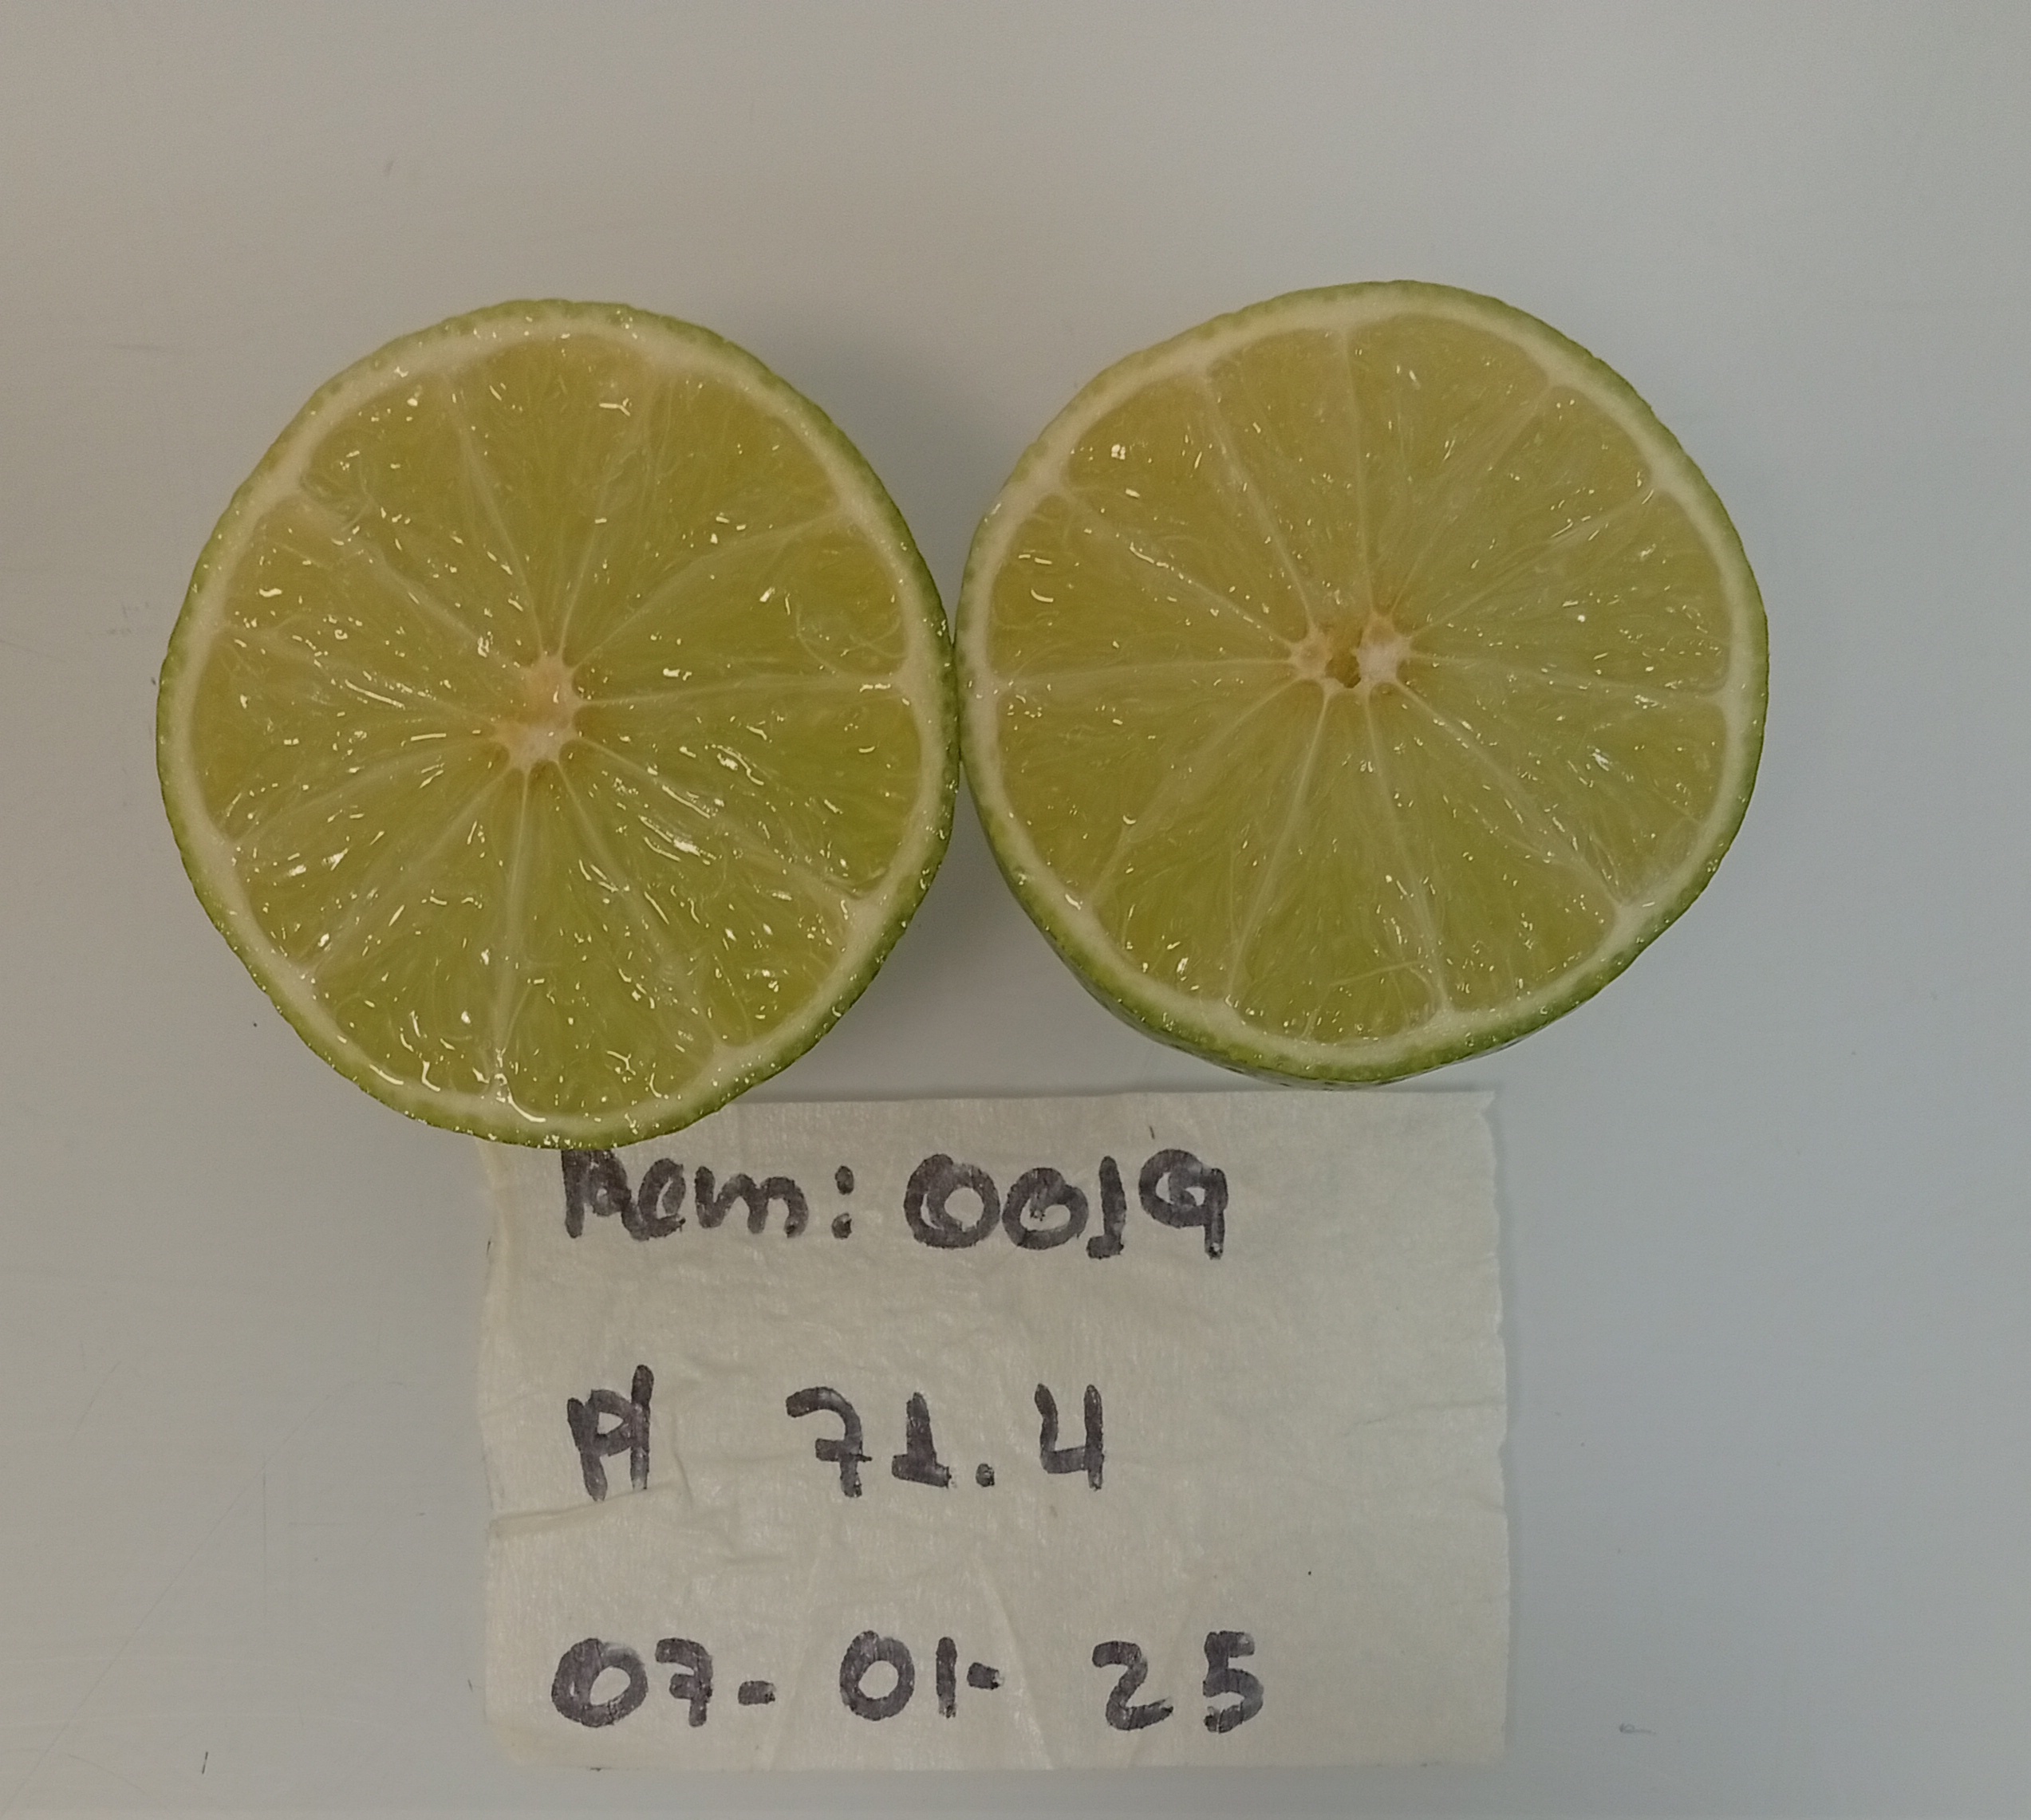 Rem: 0019
A 71.4
07-01-25